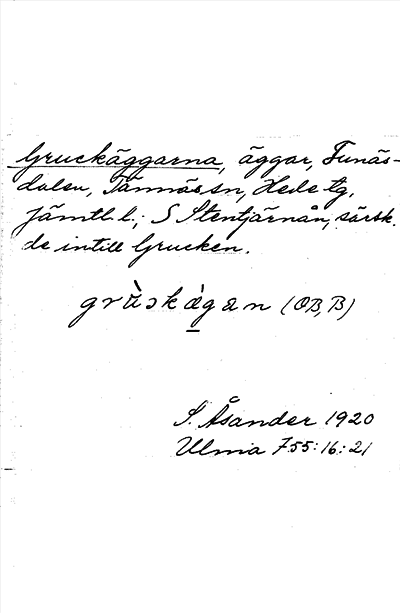 Gruckäggarna, äggar, Funäs-
dalen, Tännäs sn, Hede tg,
Jämtl. l.; S Stentjärnån, särsk.
de intill Grucken.
(OB, B)
S. Åsander 1920
Ulma 755:16:21